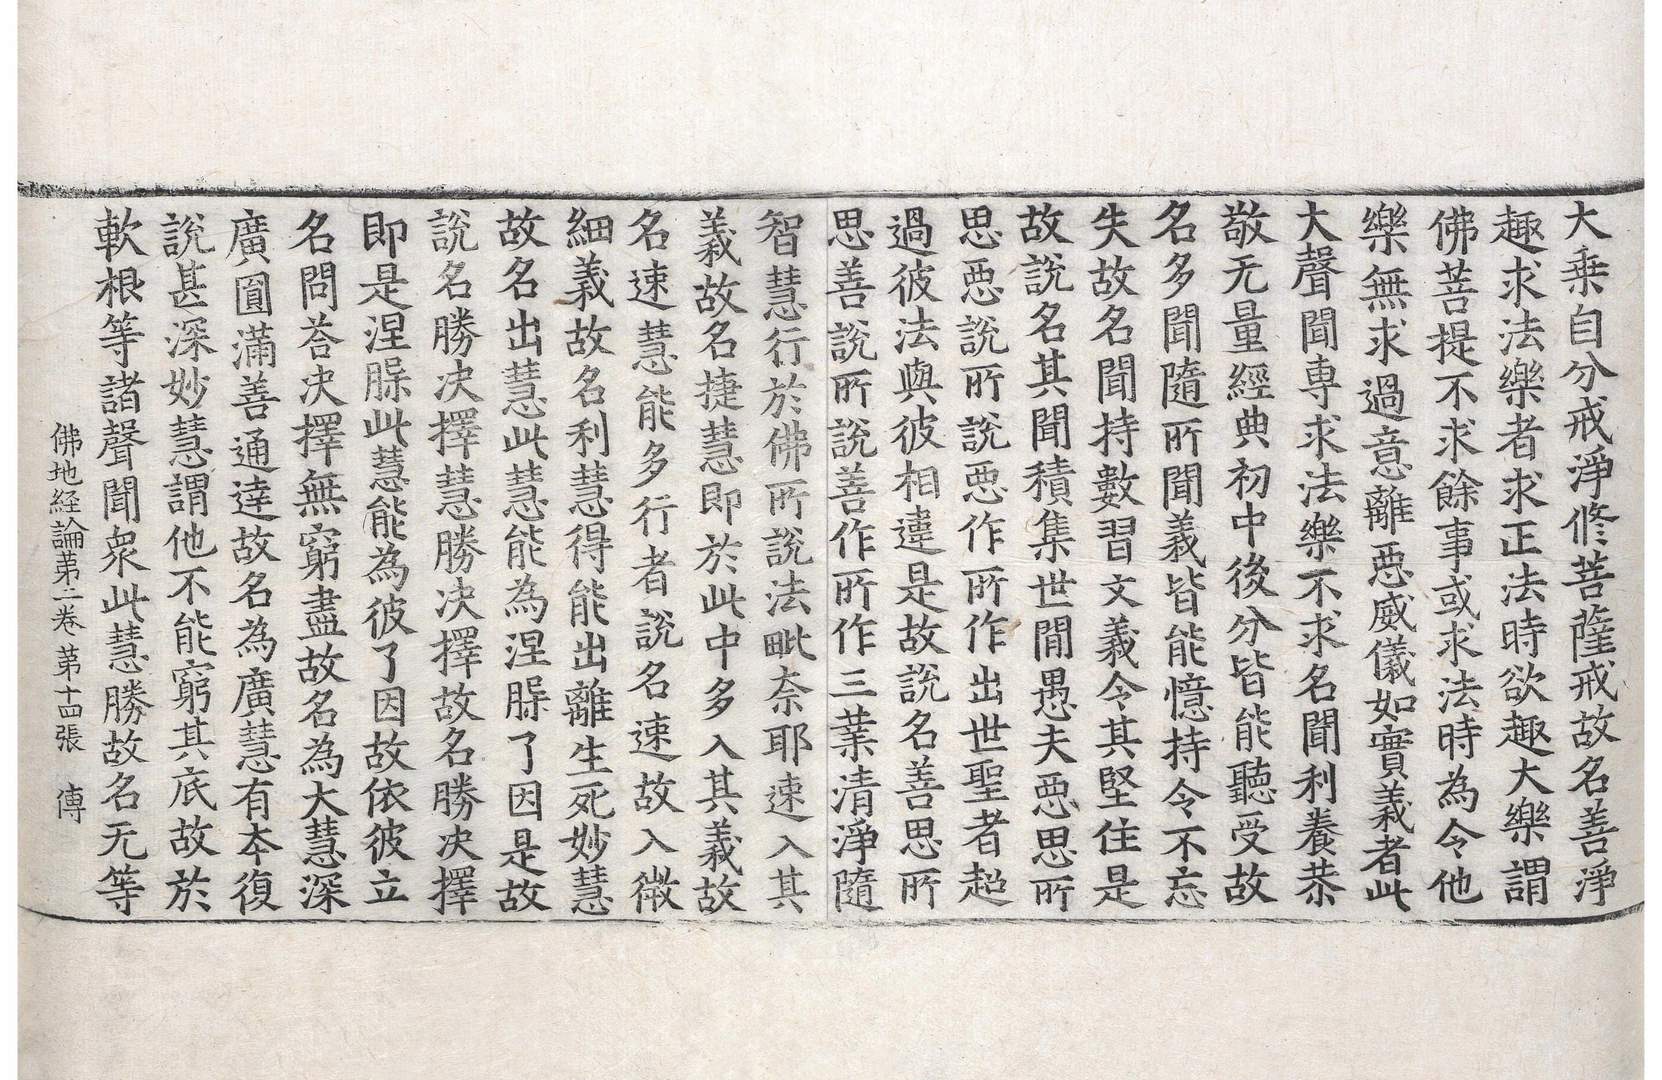 大乗自分戒淨修菩薩戒故名善淨
趣求法樂者求正法時欲趣大樂謂
佛菩提不求餘事或求法時為令他
樂無求過意離惡威儀如實義者此
大聲聞専求法樂不求名聞利養恭
敬无量經典初中後分皆能聽受故
名多聞隨所聞義皆能憶持令不忘
失故名聞持數習文義令其堅住是
故說名其聞積集世間愚夫惡思所
思惡說所說惡作所作出世聖者超
過彼法與彼相違是故說名善思所
思善說所說善作所作三業清淨隨
智慧行於佛所說法毗奈耶速入其
義故名捷慧即於此中多入其義故
名速慧能多行者說名速故入微
細義故名利慧得能出離生死妙慧
故名出慧此慧能為涅槃了因是故
說名勝决擇慧勝决擇故名勝决擇
即是涅槃此慧能為彼了因故依彼立
名問荅决擇無窮盡故名為大慧深
廣圓滿善通達故名為廣慧有本復
說甚深妙慧謂他不能窮其底故於
軟根等諸聲聞衆此慧勝故名无等
佛地経論苐二卷 第十四張 傳